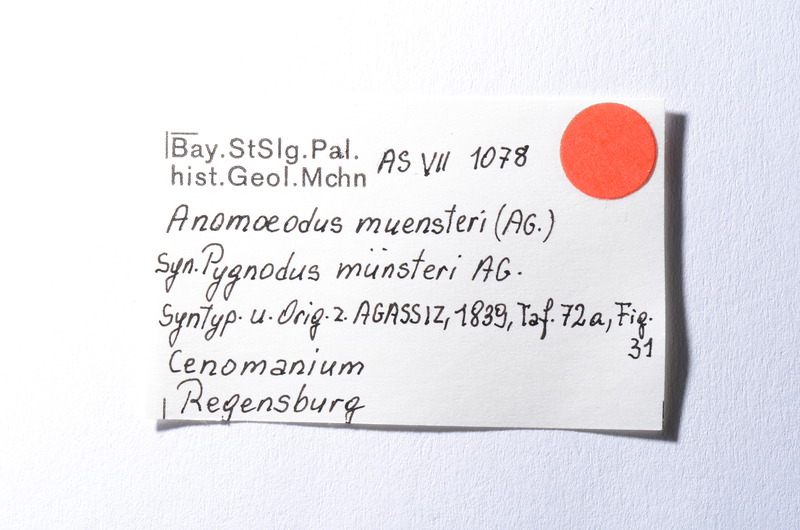 Bay.StSlg.Pal.
hist.Geol.Mchn
AS VII 1078
Anomoeodus muensteri (AG.)
Syn. Pygnodus münsteri AG.
Syntyp. u. Orig. z. AGASSIZ, 1839, Taf. 72a, Fig.
31
Cenomanium
Regensburg